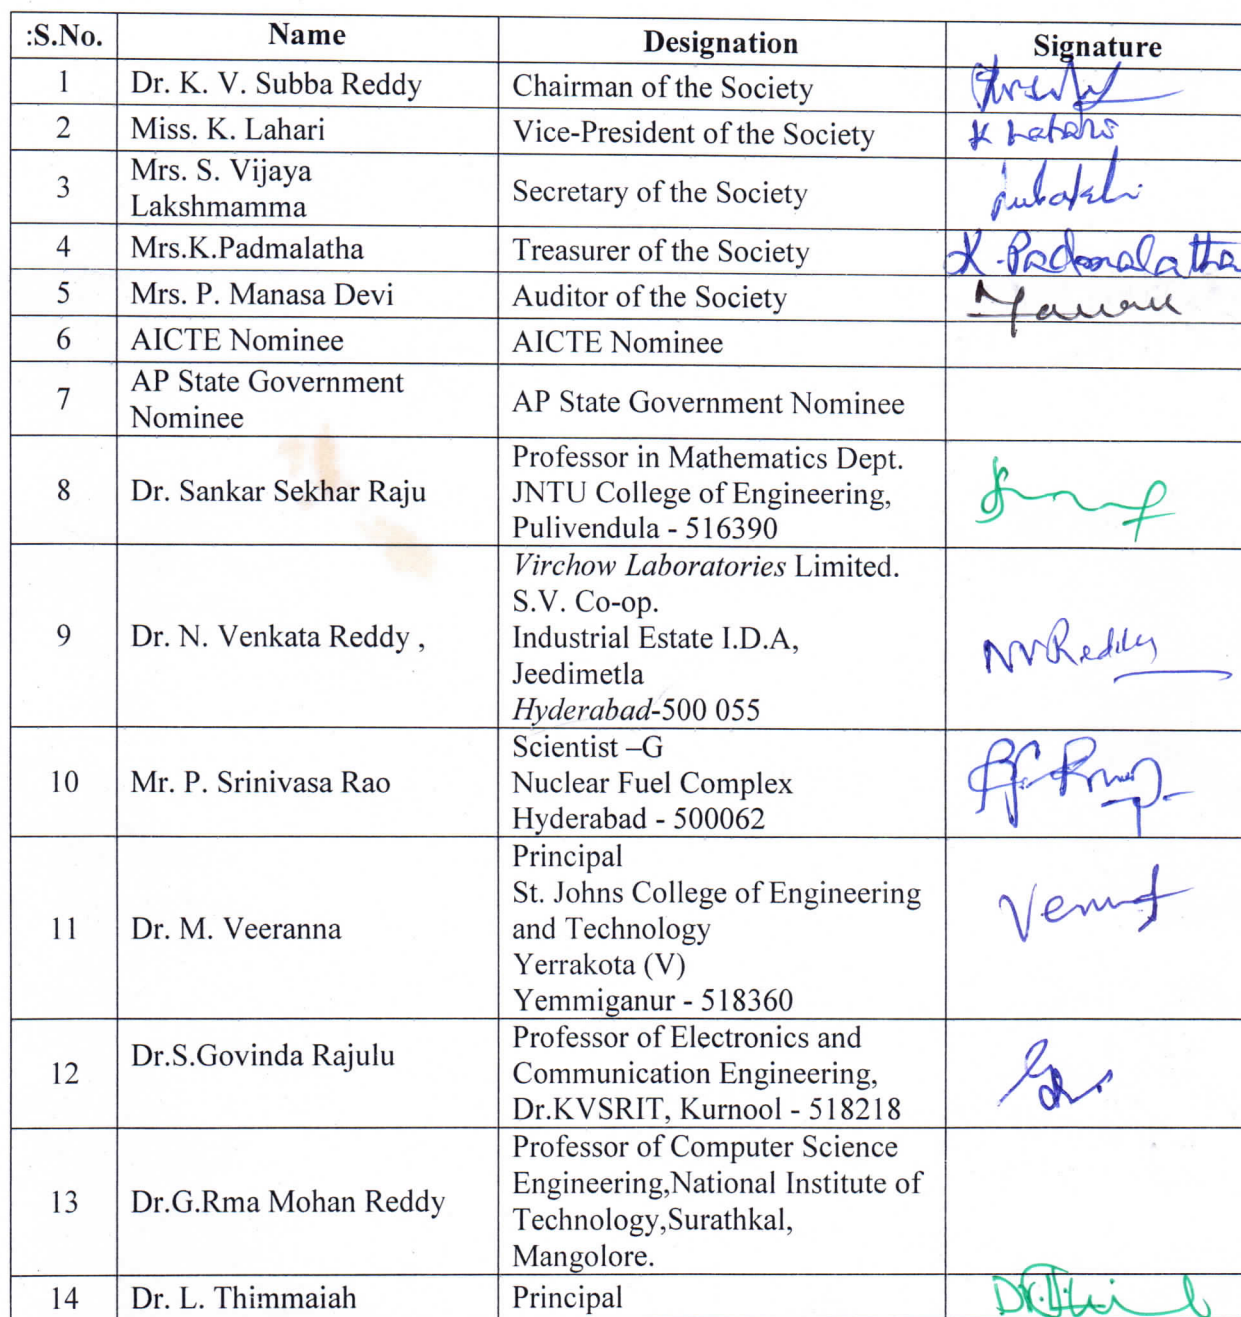 :S.No. Name Designation Signature
1 Dr. K. V. Subba Reddy Chairman of the Society
2 Miss. K. Lahari Vice-President of the Society K Lahari
3 Mrs. S. Vijaya
Lakshmamma Secretary of the Society
4 Mrs.K.Padmalatha Treasurer of the Society K. Padmalatha
5 Mrs. P. Manasa Devi Auditor of the Society
6 AICTE Nominee AICTE Nominee
7 AP State Government
Nominee AP State Government Nominee
8 Dr. Sankar Sekhar Raju Professor in Mathematics Dept.
JNTU College of Engineering,
Pulivendula - 516390
9 Dr. N. Venkata Reddy , Virchow Laboratories Limited.
S.V. Co-op.
Industrial Estate I.D.A,
Jeedimetla
Hyderabad-500 055
NVReddy
10 Mr. P. Srinivasa Rao Scientist –G
Nuclear Fuel Complex
Hyderabad - 500062
11 Dr. M. Veeranna Principal
St. Johns College of Engineering
and Technology
Yerrakota (V)
Yemmiganur - 518360
12 Dr.S.Govinda Rajulu Professor of Electronics and
Communication Engineering,
Dr.KVSRIT, Kurnool - 518218
13 Dr.G.Rma Mohan Reddy Professor of Computer Science
Engineering,National Institute of
Technology,Surathkal,
Mangolore.
14 Dr. L. Thimmaiah Principal